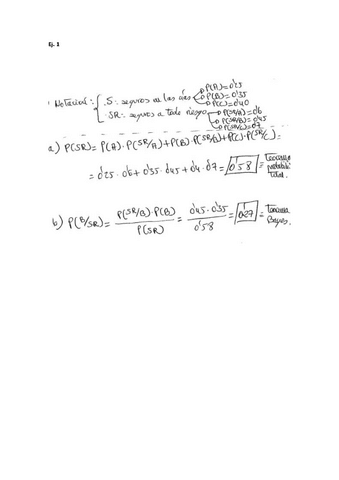 Ej. 1
Notación: S: seguros en las cías P(A)=0'25
P(B)=0'35
P(C)=0'40
SR: seguros a todo riesgo P(SR/A)=0'6
P(SR/B)=0'45
P(SR/C)=0'7
a) P(SR)= P(A)·P(SR/A)+P(B)·P(SR/B)+P(C)·P(SR/C)=
= 0'25 · 0'6 + 0'35 · 0'45 + 0'4 · 0'7 = 0'58 = Teorema probabili total.
b) P(B/SR)= P(SR/B)·P(B) / P(SR) = 0'45 · 0'35 / 0'58 = 0'27 = Teorema Bayes.